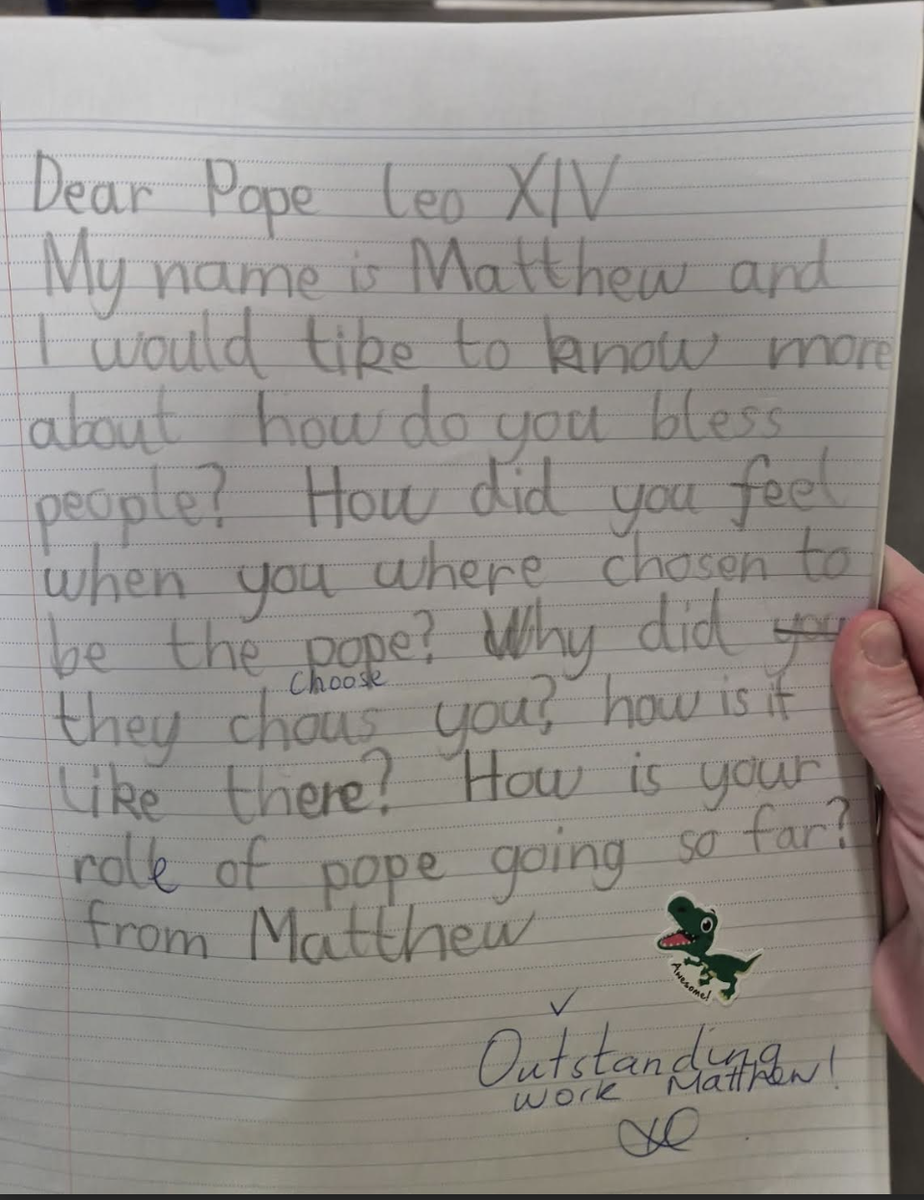 Dear Pope Leo XIV
My name is Matthew and
I would like to know more
about how do you bless
people? How did you feel
when you where chosen to
be the pope? Why did you
Choose
they chous you? how is it
like there? How is your
role of pope going so far?
from Matthew
Awesome!
Outstanding
work Matthew!